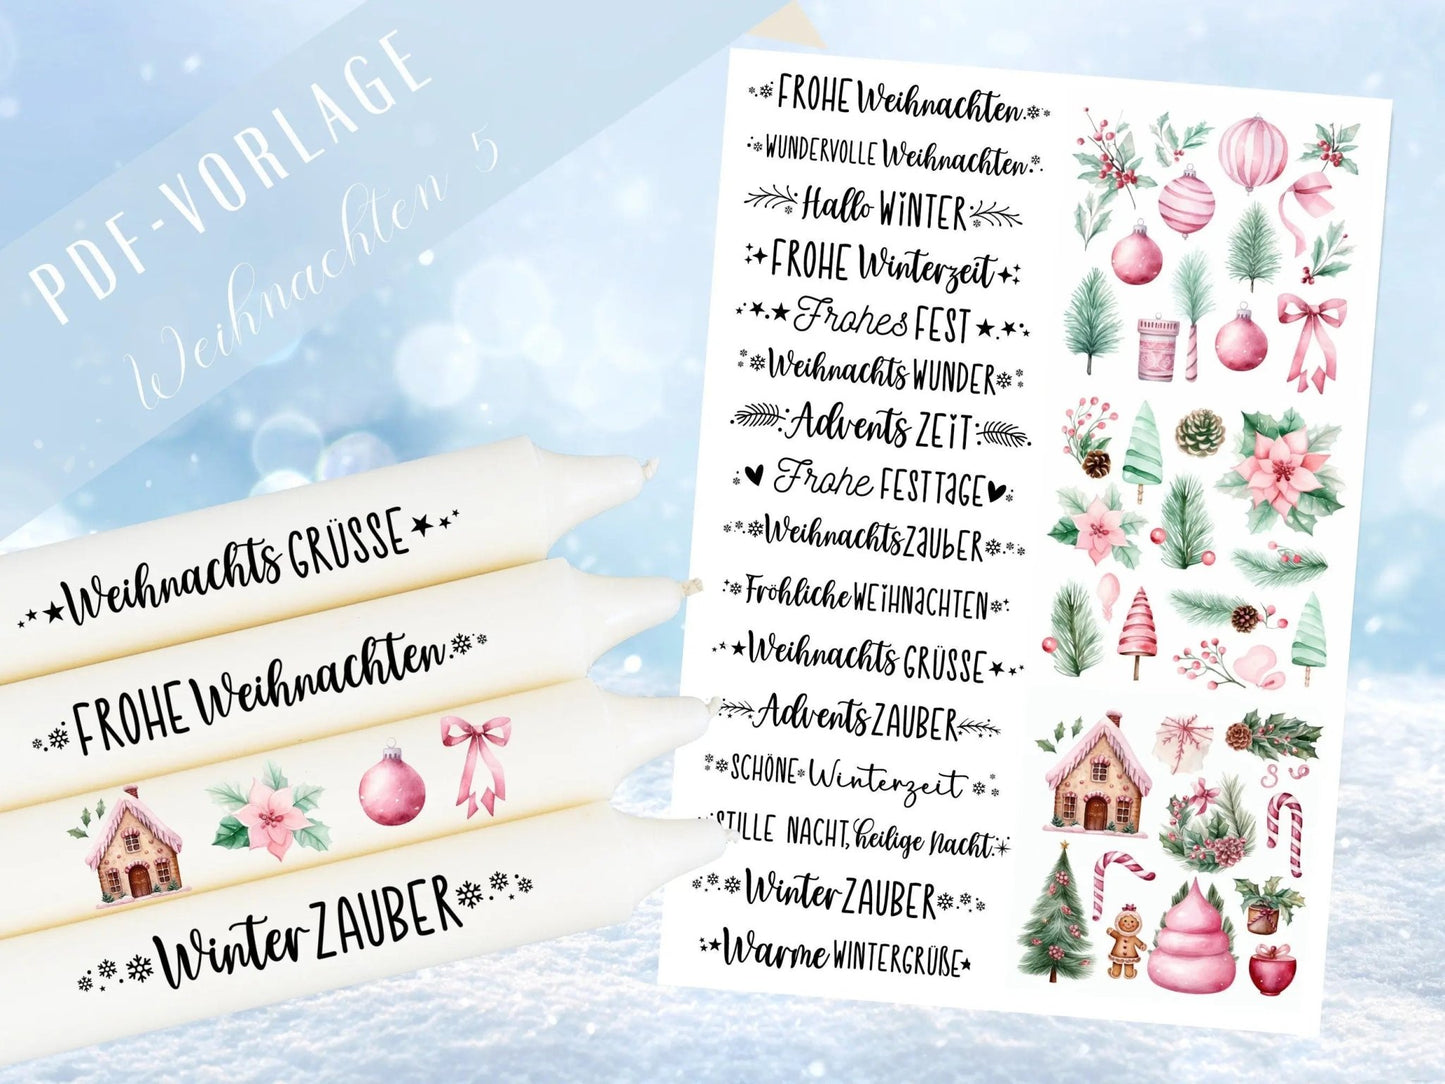 PDF-VORLAGE
Weihnachten 5
Weihnachts GRÜSSE
FROHE Weihnachten
Winter ZAUBER
FROHE Weihnachten
WUNDERVOLLE Weihnachten
Hallo WiNTER
FROHE Winterzeit
Frohes FEST
Weihnachts WUNDER
Advents ZEiT
Frohe FESTTaGE
WeihnachtsZaubER
Fröhliche WEiHNaCHTEN
Weihnachts GRÜSSE
Advents ZAUBER
SCHÖNE Winterzeit
STILLE NACHT, heilige Nacht.
Winter ZAUBER
Warme WINTERGRÜßE